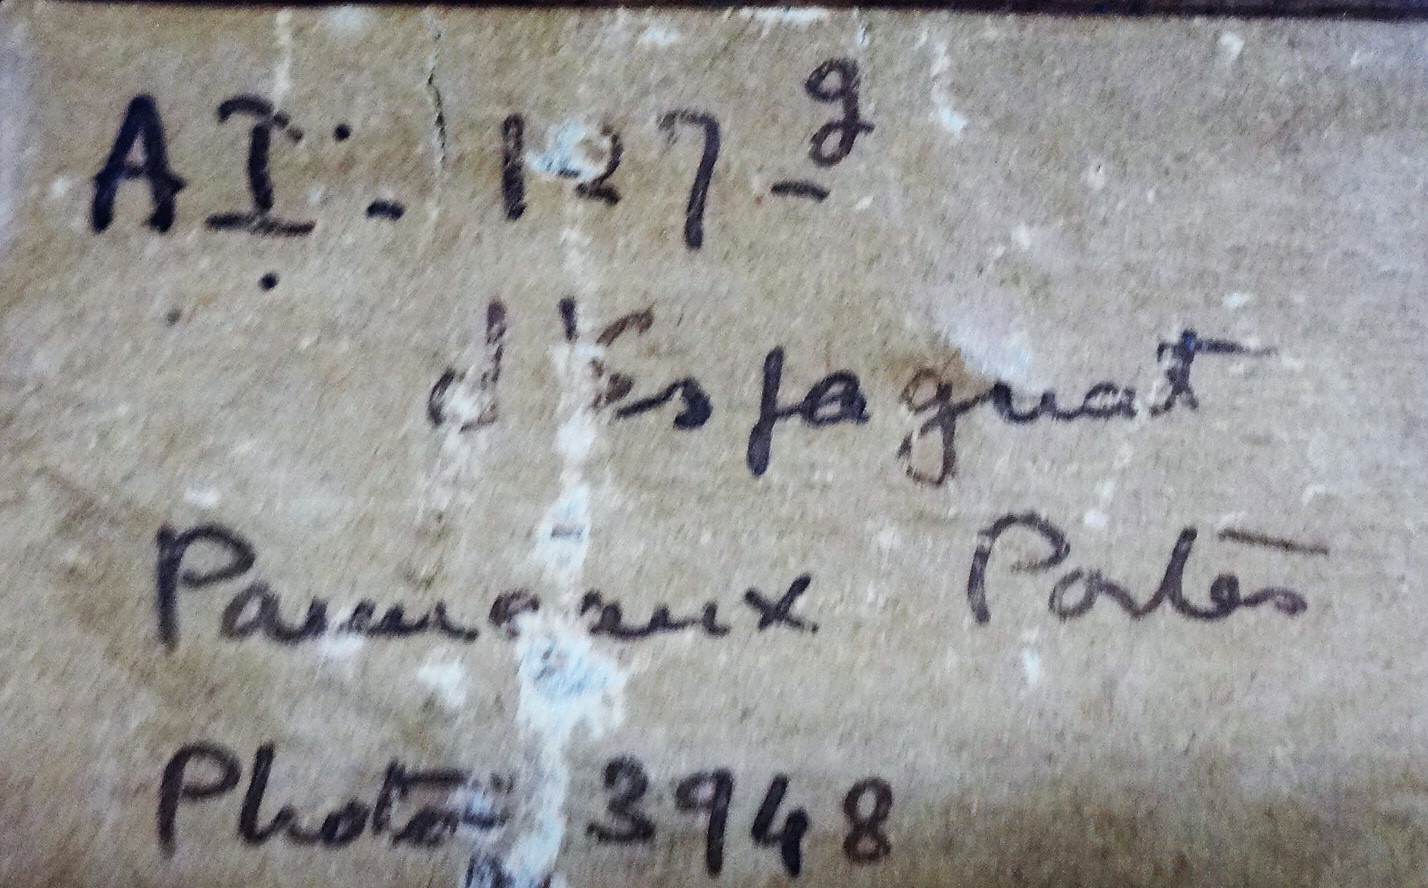 AI. - 127 - g
d'Espagnat
Panneaux Portes
Photo 3948